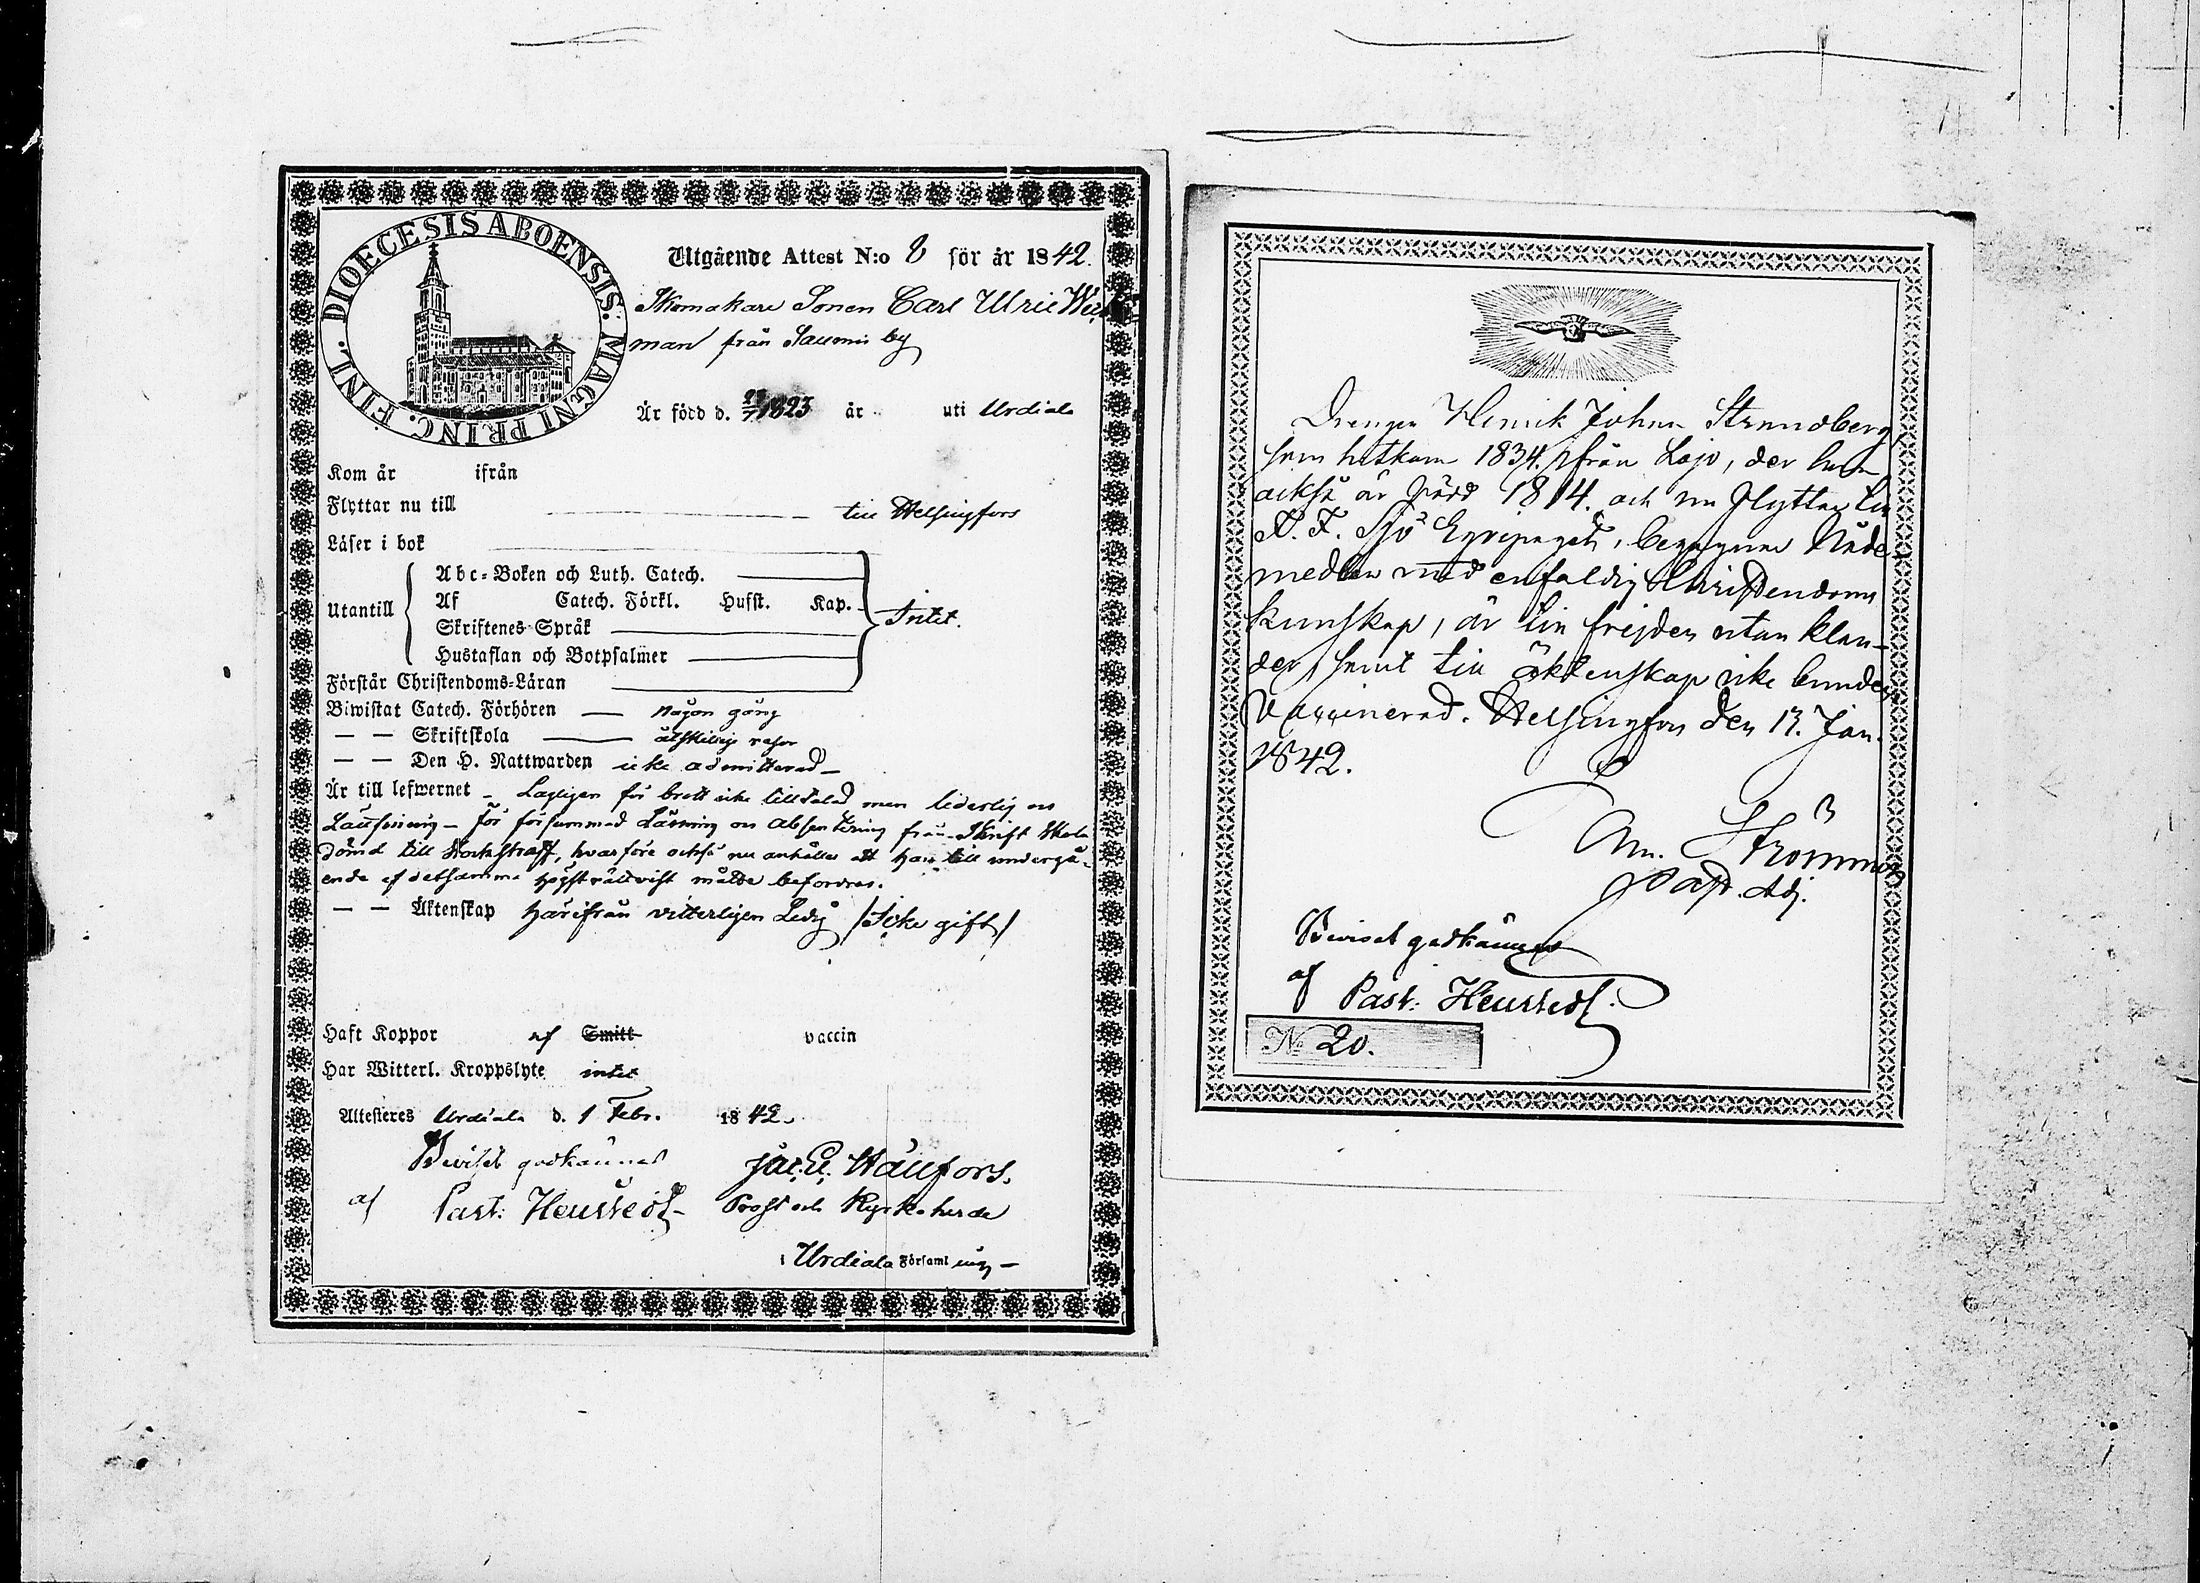 DIOECESIS ABOENSIS. MAGNI PRINC. FINL.
Utgående Attest N:o 8 för år 1842.
Skomakare Sonen Carl Ulric
man från by
Är född d. 1823 år uti Urdiala
Kom år ifrån
Flyttar nu till till Helsingfors
Läser i bok
Utantill
Abc-Boken och Luth. Catech.
Af Catech. Förkl. Husst. Kap.
Skriftenes Språk
Hustaflan och Botpsalmer
Intet.
Förstår Christendoms-Läran
Biwistat Catech. Förhören någon gång
— — Skriftskola åtskillig resor
— — Den H. Nattwarden icke admitterad
Är till lefwernet Lagligen för brott icke tilltalad men liderlig
för försummad Läsning och Absentering från Skrift Skola
dömd till Stockstraff, hvarföre också nu anhålles att han till undergå-
ende af detsamma måtte befordras.
— — Äktenskap Härifrån vitterligen Ledig /Icke gift/
Haft Koppor af Smitt vaccin
Har Witterl. Kroppslyte intet
Attesteres Urdiala d. 1 Febr. 1842.
Beviset godkännes
af Past:
Prost och Kyrkoherde
i Urdiala Församling
Drengen Henrik Johan Strandberg
som hitkom 1834 ifrån Lojo, der han
också är född 1814. och nu flyttar till
N. F. Sjö Eqvipaget, begagnar Nåde-
medlen med enfaldig Christendoms
kunskap, är till frejden utan klan-
der, samt till äktenskap icke bunden
Vaccinerad. Helsingfors den 13. Jan.
1842.
Past. Adj.
Beviset godkännes
af Past:
No 20.